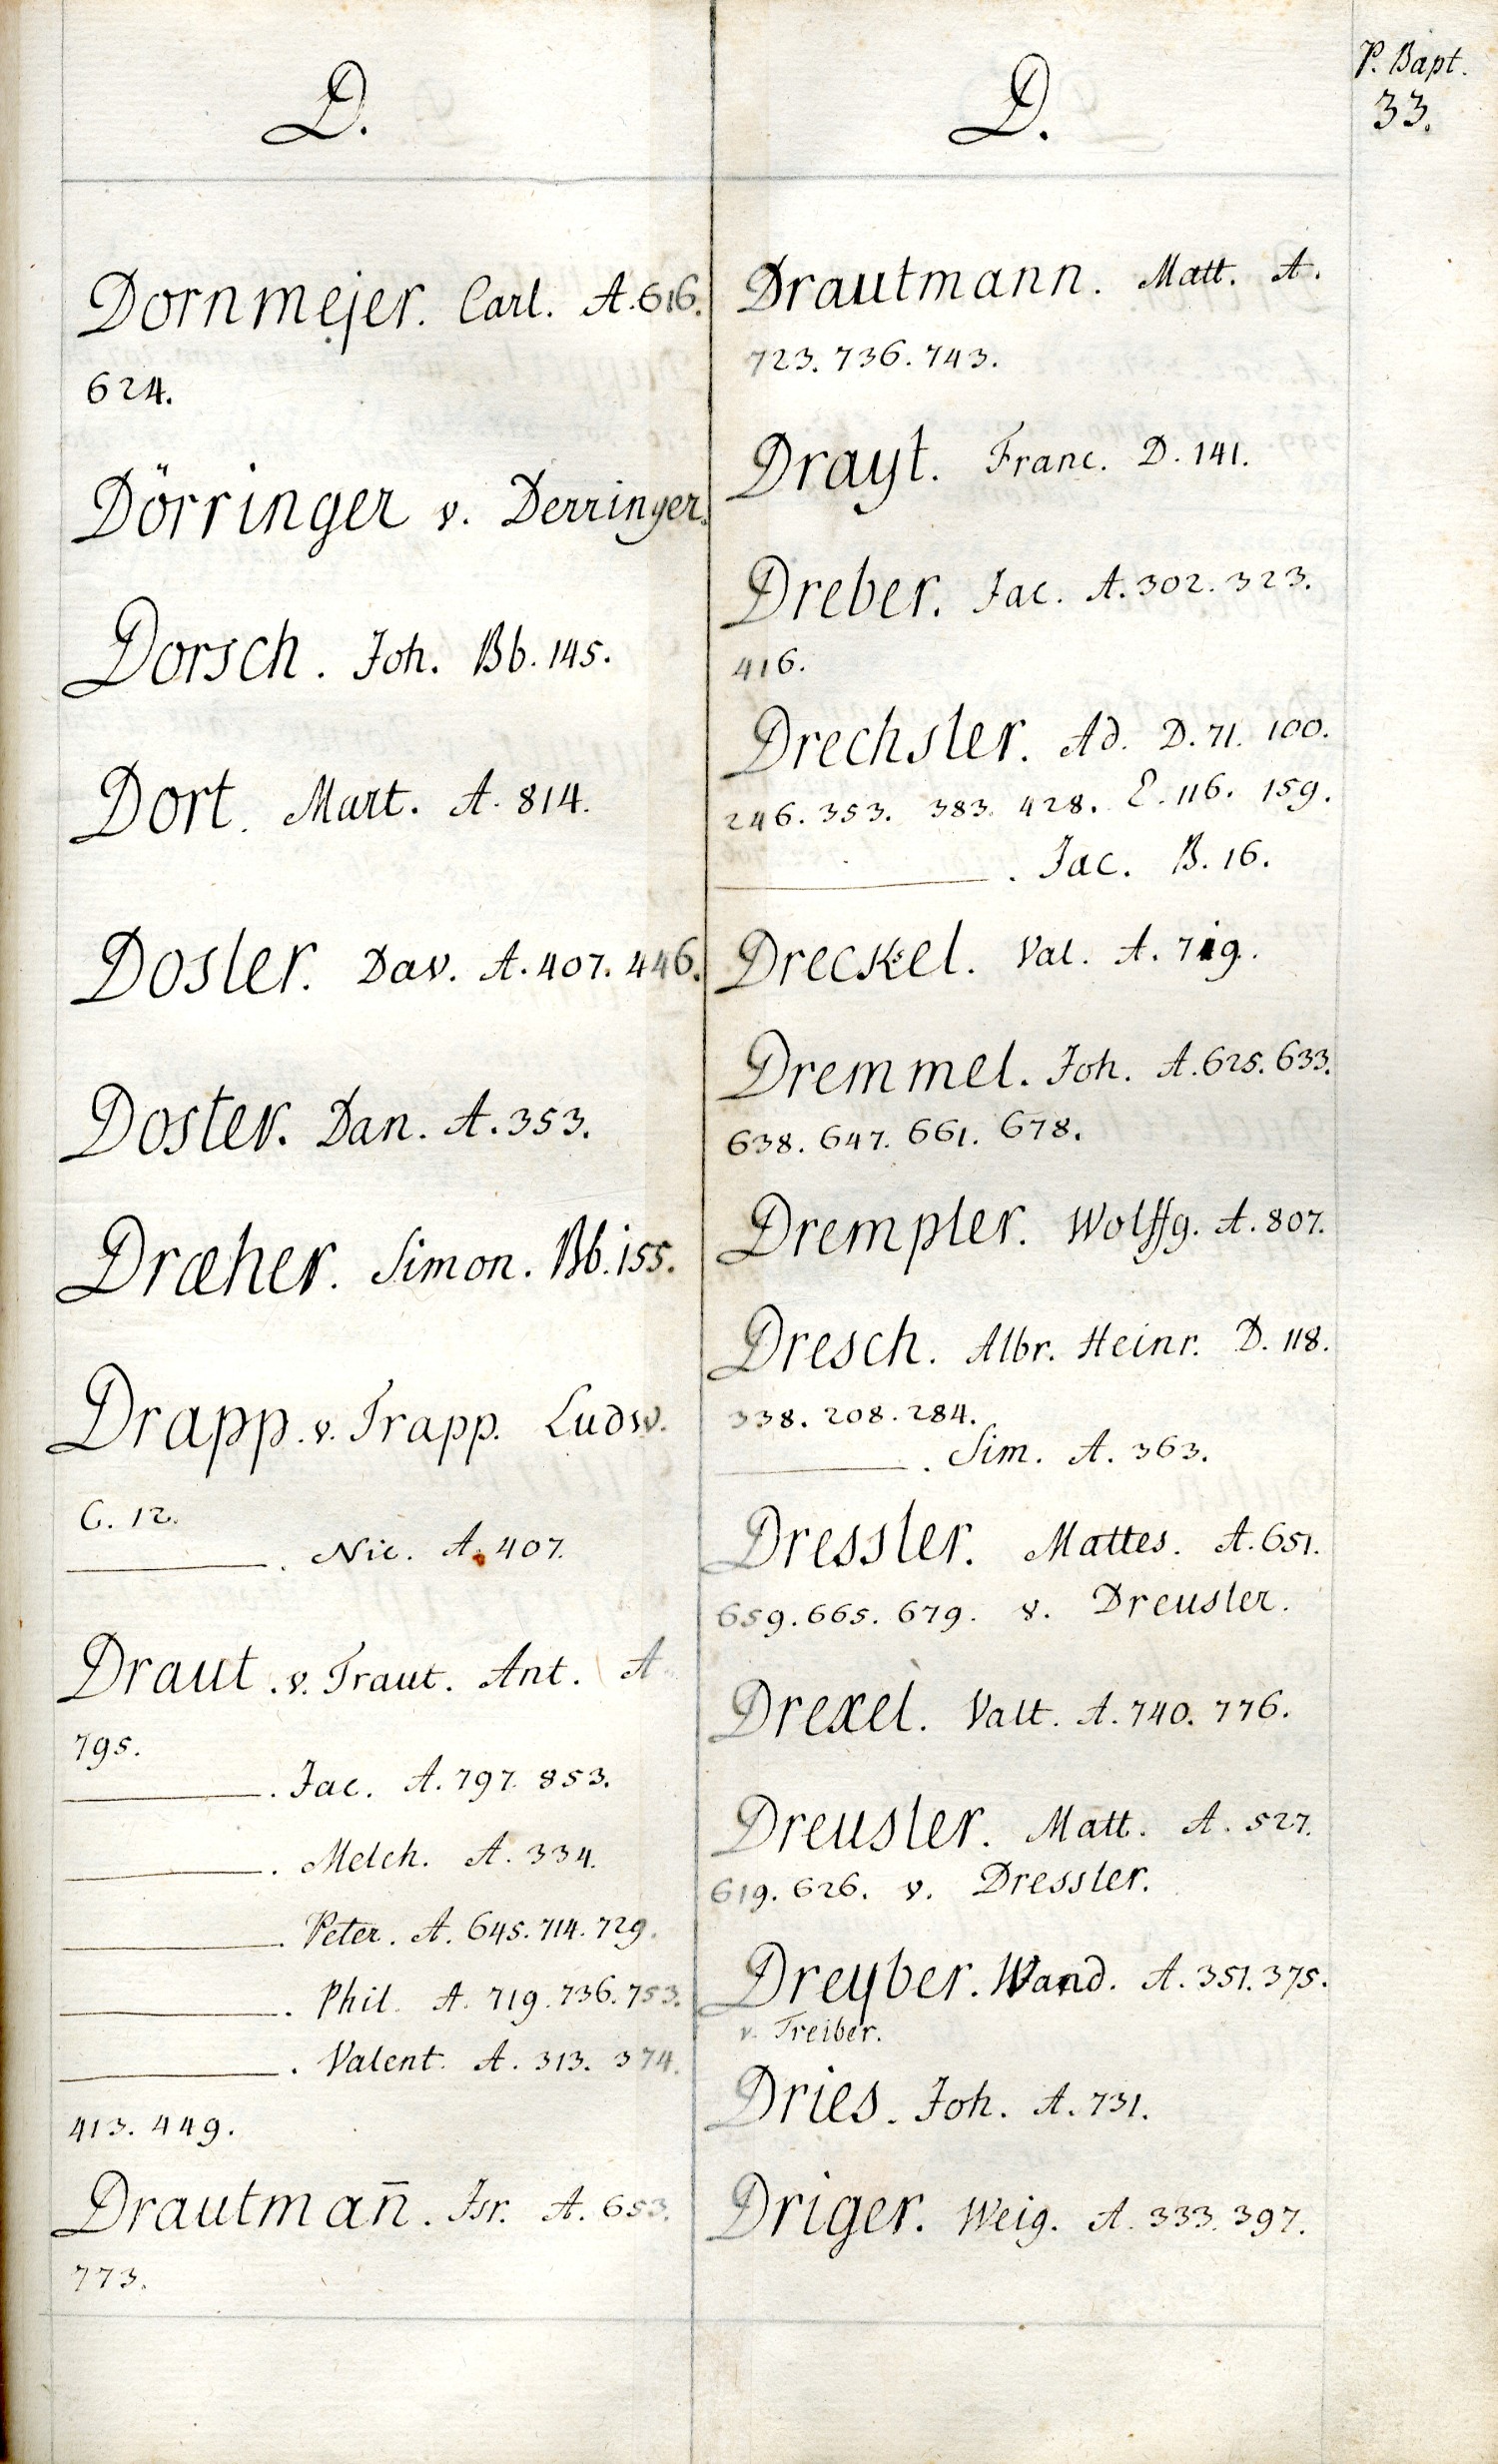 P. Bapt.
33.
D.
Dornmejer. Carl. A. 616.
624.
Dörringer v. Derringer.
Dorsch. Joh. Bb. 145.
Dort. Mart. A. 814.
Dosler. Dav. A. 407. 446.
Doster. Dan. A. 353.
Dræher. Simon. Bb. 155.
Drapp. v. Trapp. Ludw.
C. 12.
———. Nic. A. 407.
Draut. v. Traut. Ant. A
795.
———. Jac. A. 797. 853.
———. Melch. A. 334.
———. Peter. A. 645. 714. 729.
———. Phil. A. 719. 736. 753.
———. Valent. A. 313. 374.
413. 449.
Drautman̄. Isr. A. 653.
773.
D.
Drautmann. Matt. A.
723. 736. 743.
Drayt. Franc. D. 141.
Dreber. Jac. A. 302. 323.
416.
Drechsler. Ad. D. 71. 100.
246. 353. 383. 428. E. 116. 159.
———. Jac. B. 16.
Dreckel. Val. A. 719.
Dremmel. Joh. A. 625. 633.
638. 647. 661. 678.
Drempler. Wolffg. A. 807.
Dresch. Albr. Heinr. D. 118.
338. 208. 284.
———. Sim. A. 363.
Dressler. Mattes. A. 651.
659. 665. 679. v. Dreusler.
Drexel. Valt. A. 740. 776.
Dreusler. Matt. A. 527.
619. 626. v. Dressler.
Dreyber. Wand. A. 351. 375.
v. Treiber.
Dries. Joh. A. 731.
Driger. Weig. A. 333. 397.